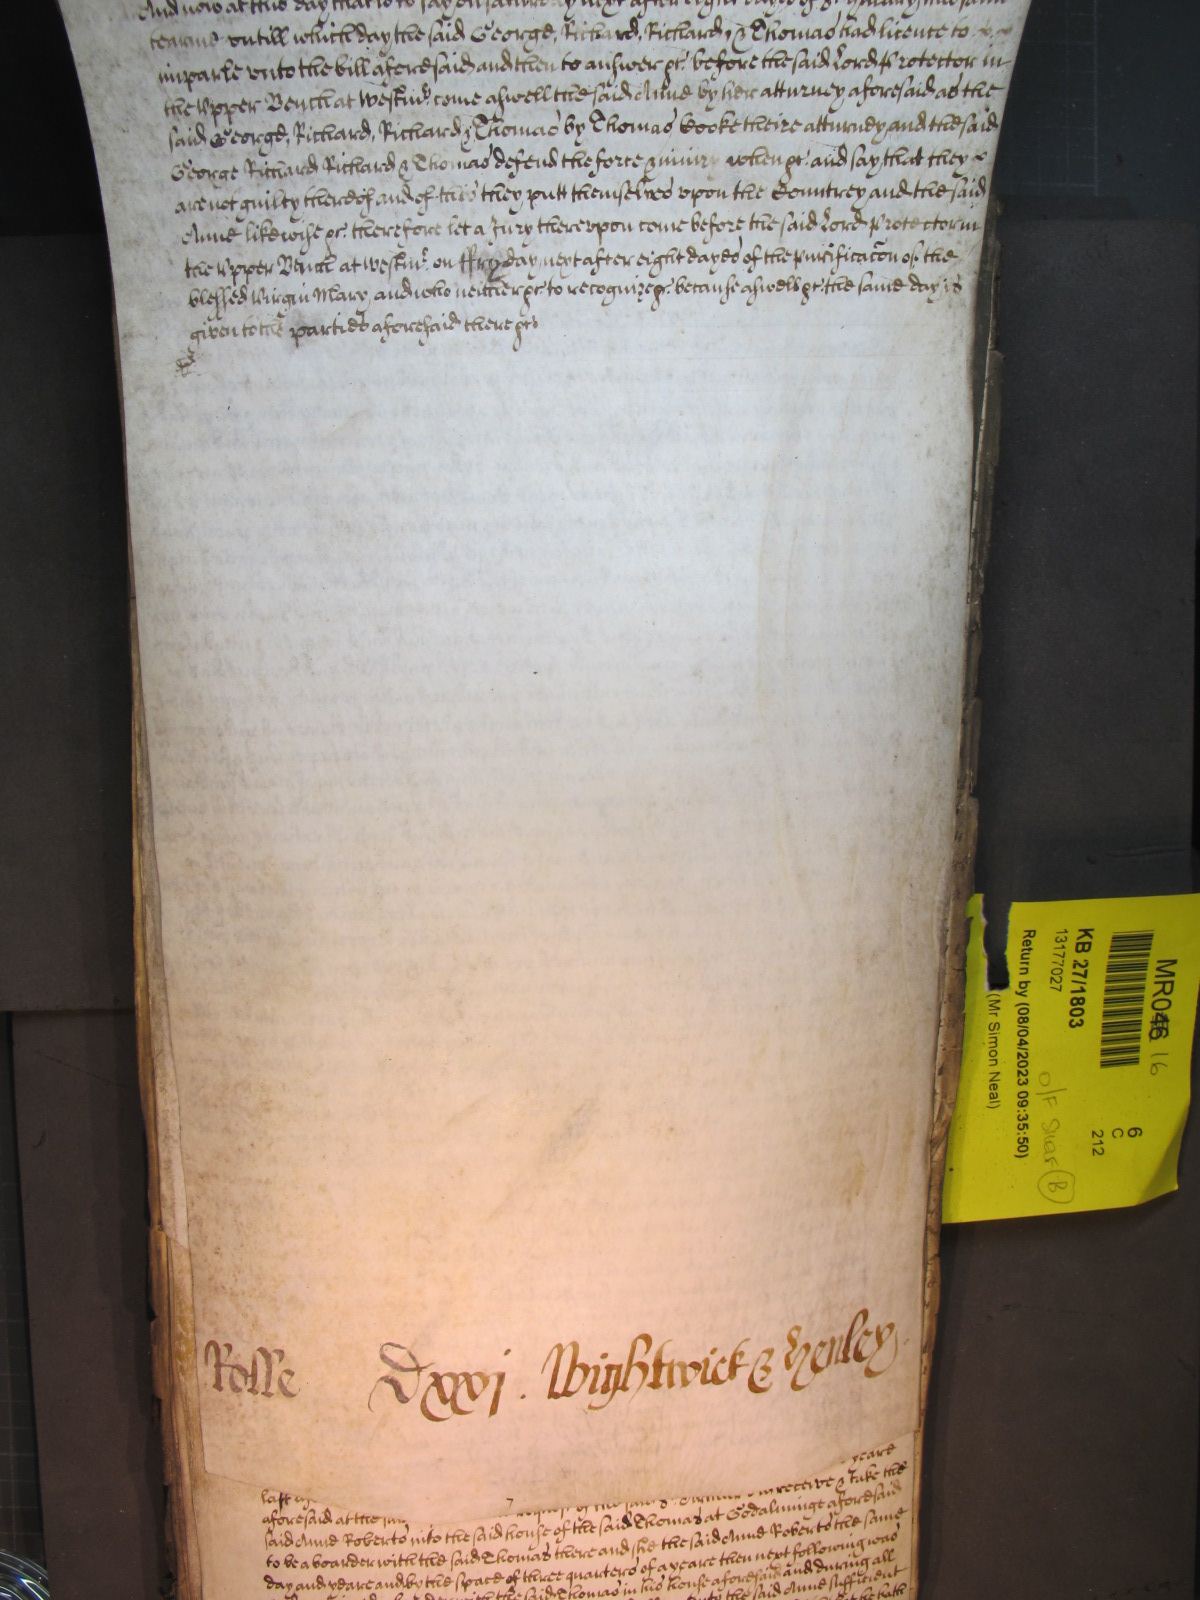 And now at this day that is to say on Saturday next after eight dayes of St Hillary this same
tearme untill which day the said George, Richard, Richard, & Thomas had licence to
imparle unto the bill aforesaid and then to answer &c. before the said Lord Protector in
the Upper Bench at Westmr. come aswell the said Anne by her atturney aforesaid as the
said George, Richard, Richard & Thomas by Thomas Cooke theire atturney and the said
George Richard Richard & Thomas defend the force & iniury when &c. and say that they
are not guilty thereof and of this they putt themselves upon the Countrey and the said
Anne likewise &c. therefore let a Jury thereupon come before the said Lord Protector in
the Upper Bench at Westmr. on ffryday next after eight dayes of the purificacon of the
blessed Virgin Mary and who neither &c. to recognize &c. because aswell &c. the same day is
given to the parties aforesaid there &c.
Rosse Dxxvj . Wightwick & Henley
yeare
last
aforesaid at the receive & take the
said Anne Roberts into the said house of the said Thomas at Godalminge aforesaid
to be a boarder with the said Thomas there and she the said Anne Roberts the same
day and yeare and by the space of three quarters of a yeare then next following was
the said Thomas in his house aforesaid and during all
the said Anne sufficient
MR046 16
6
C
212
KB 27/1803
13177027
O/F Shar B
Return by (08/04/2023 09:35:50)
(Mr Simon Neal)